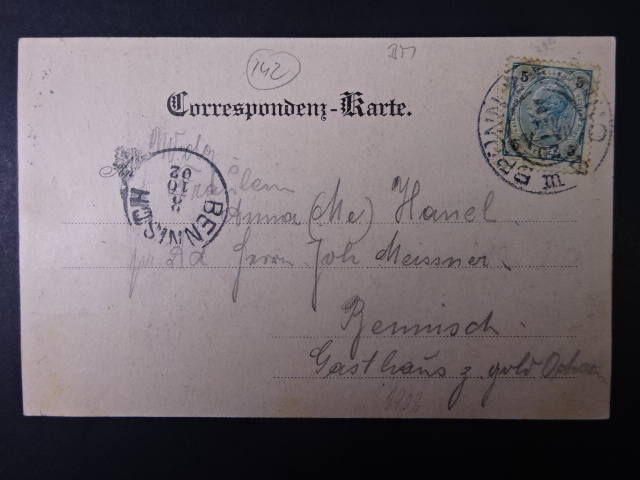 142
BM
Correspondenz-Karte.
BRÜNN
5 5
BENNISCH
8
10
02
Fräulein
Anna (Me) Hanel
pr. Ad Herrn Joh Meissner.
Bennisch.
Gasthaus z gold Ochsen
1902